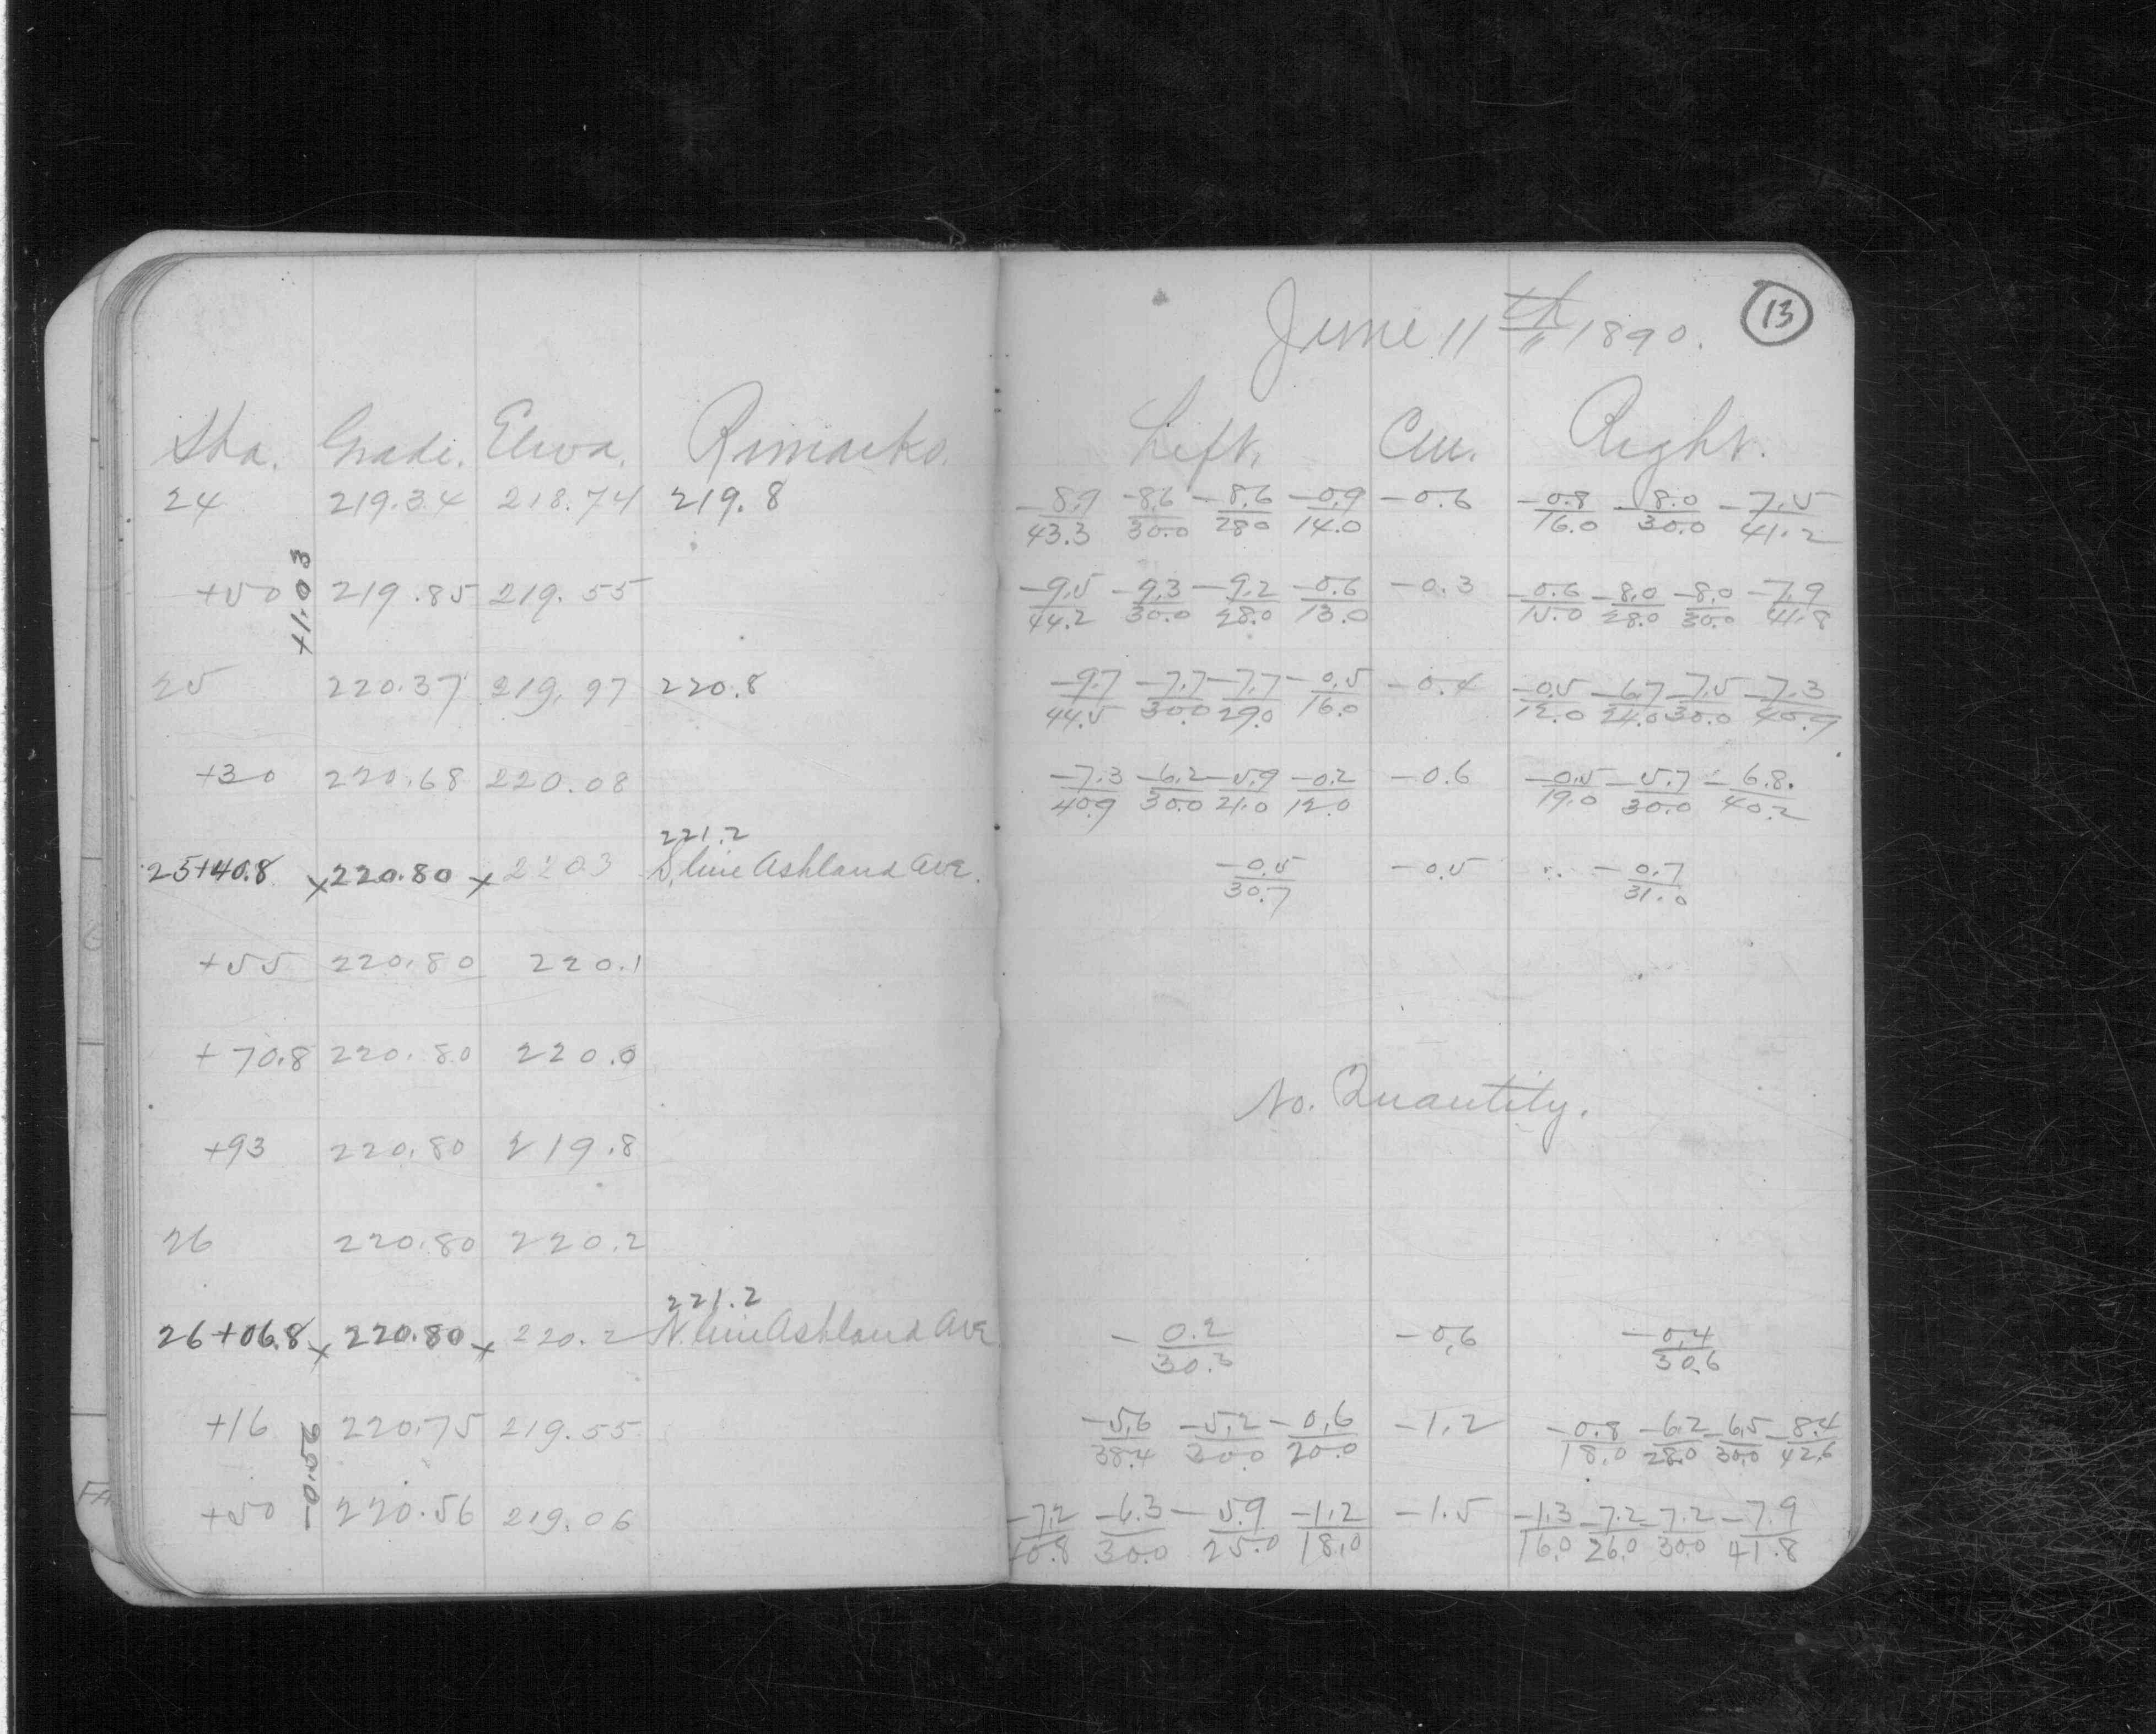 June 11th 1890. 13
Sta. Grade. Eleva. Remarks. Left. Cen. Right.
24 219.34 218.74 219.8 -8.9/43.3 -8.6/30.0 -8.6/28.0 -0.9/14.0 -0.6 -0.8/16.0 -8.0/30.0 -7.5/41.2
+1.03
+50 219.85 219.55 -9.5/44.2 -9.3/30.0 -9.2/28.0 -0.6/13.0 -0.3 -0.6/15.0 -8.0/28.0 -8.0/30.0 -7.9/41.8
25 220.37 219.97 220.8 -9.7/44.5 -7.7/30.0 -7.7/29.0 -0.5/16.0 -0.4 -0.5/12.0 -6.7/24.0 -7.5/30.0 -7.3/40.9
+30 220.68 220.08 -7.3/40.9 -6.2/30.0 -5.9/21.0 -0.2/12.0 -0.6 -0.5/19.0 -5.7/30.0 -6.8./40.2
221.2
25+40.8 x 220.80 x 220.3 S. line Ashland Ave. -0.5/30.7 -0.5 -0.7/31.0
+55 220.80 220.1
+70.8 220.80 220.0
No. Quantity.
+93 220.80 219.8
26 220.80 220.2
221.2
26+06.8 x 220.80 x 220.2 N. line Ashland Ave -0.2/30.3 -0.6 -0.4/30.6
+16 220.75 219.55 -5.6/38.4 -5.2/30.0 -0.6/20.0 -1.2 -0.8/18.0 -6.2/28.0 -6.5/30.0 -8.4/42.6
-0.56
+50 220.56 219.06 -7.2/40.8 -6.3/30.0 -5.9/25.0 -1.2/18.0 -1.5 -1.3/16.0 -7.2/26.0 -7.2/30.0 -7.9/41.8